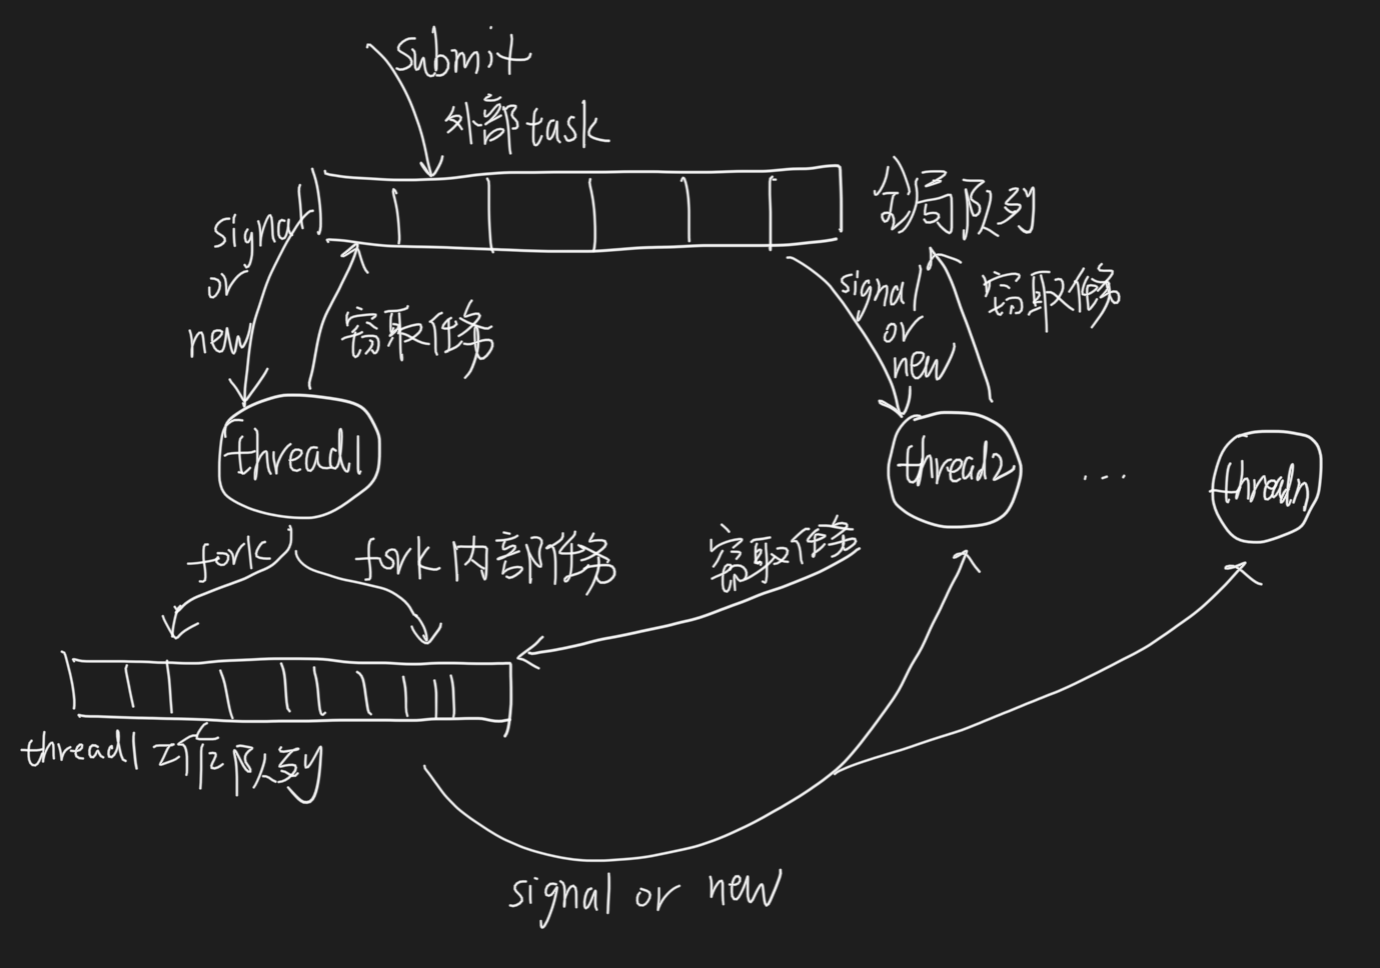 submit
外部task
全局队列
signal
or
new
窃取任务
signal
or
new
窃取任务
thread1
thread2
...
threadn
fork
fork内部任务
窃取任务
thread1工作队列
signal or new